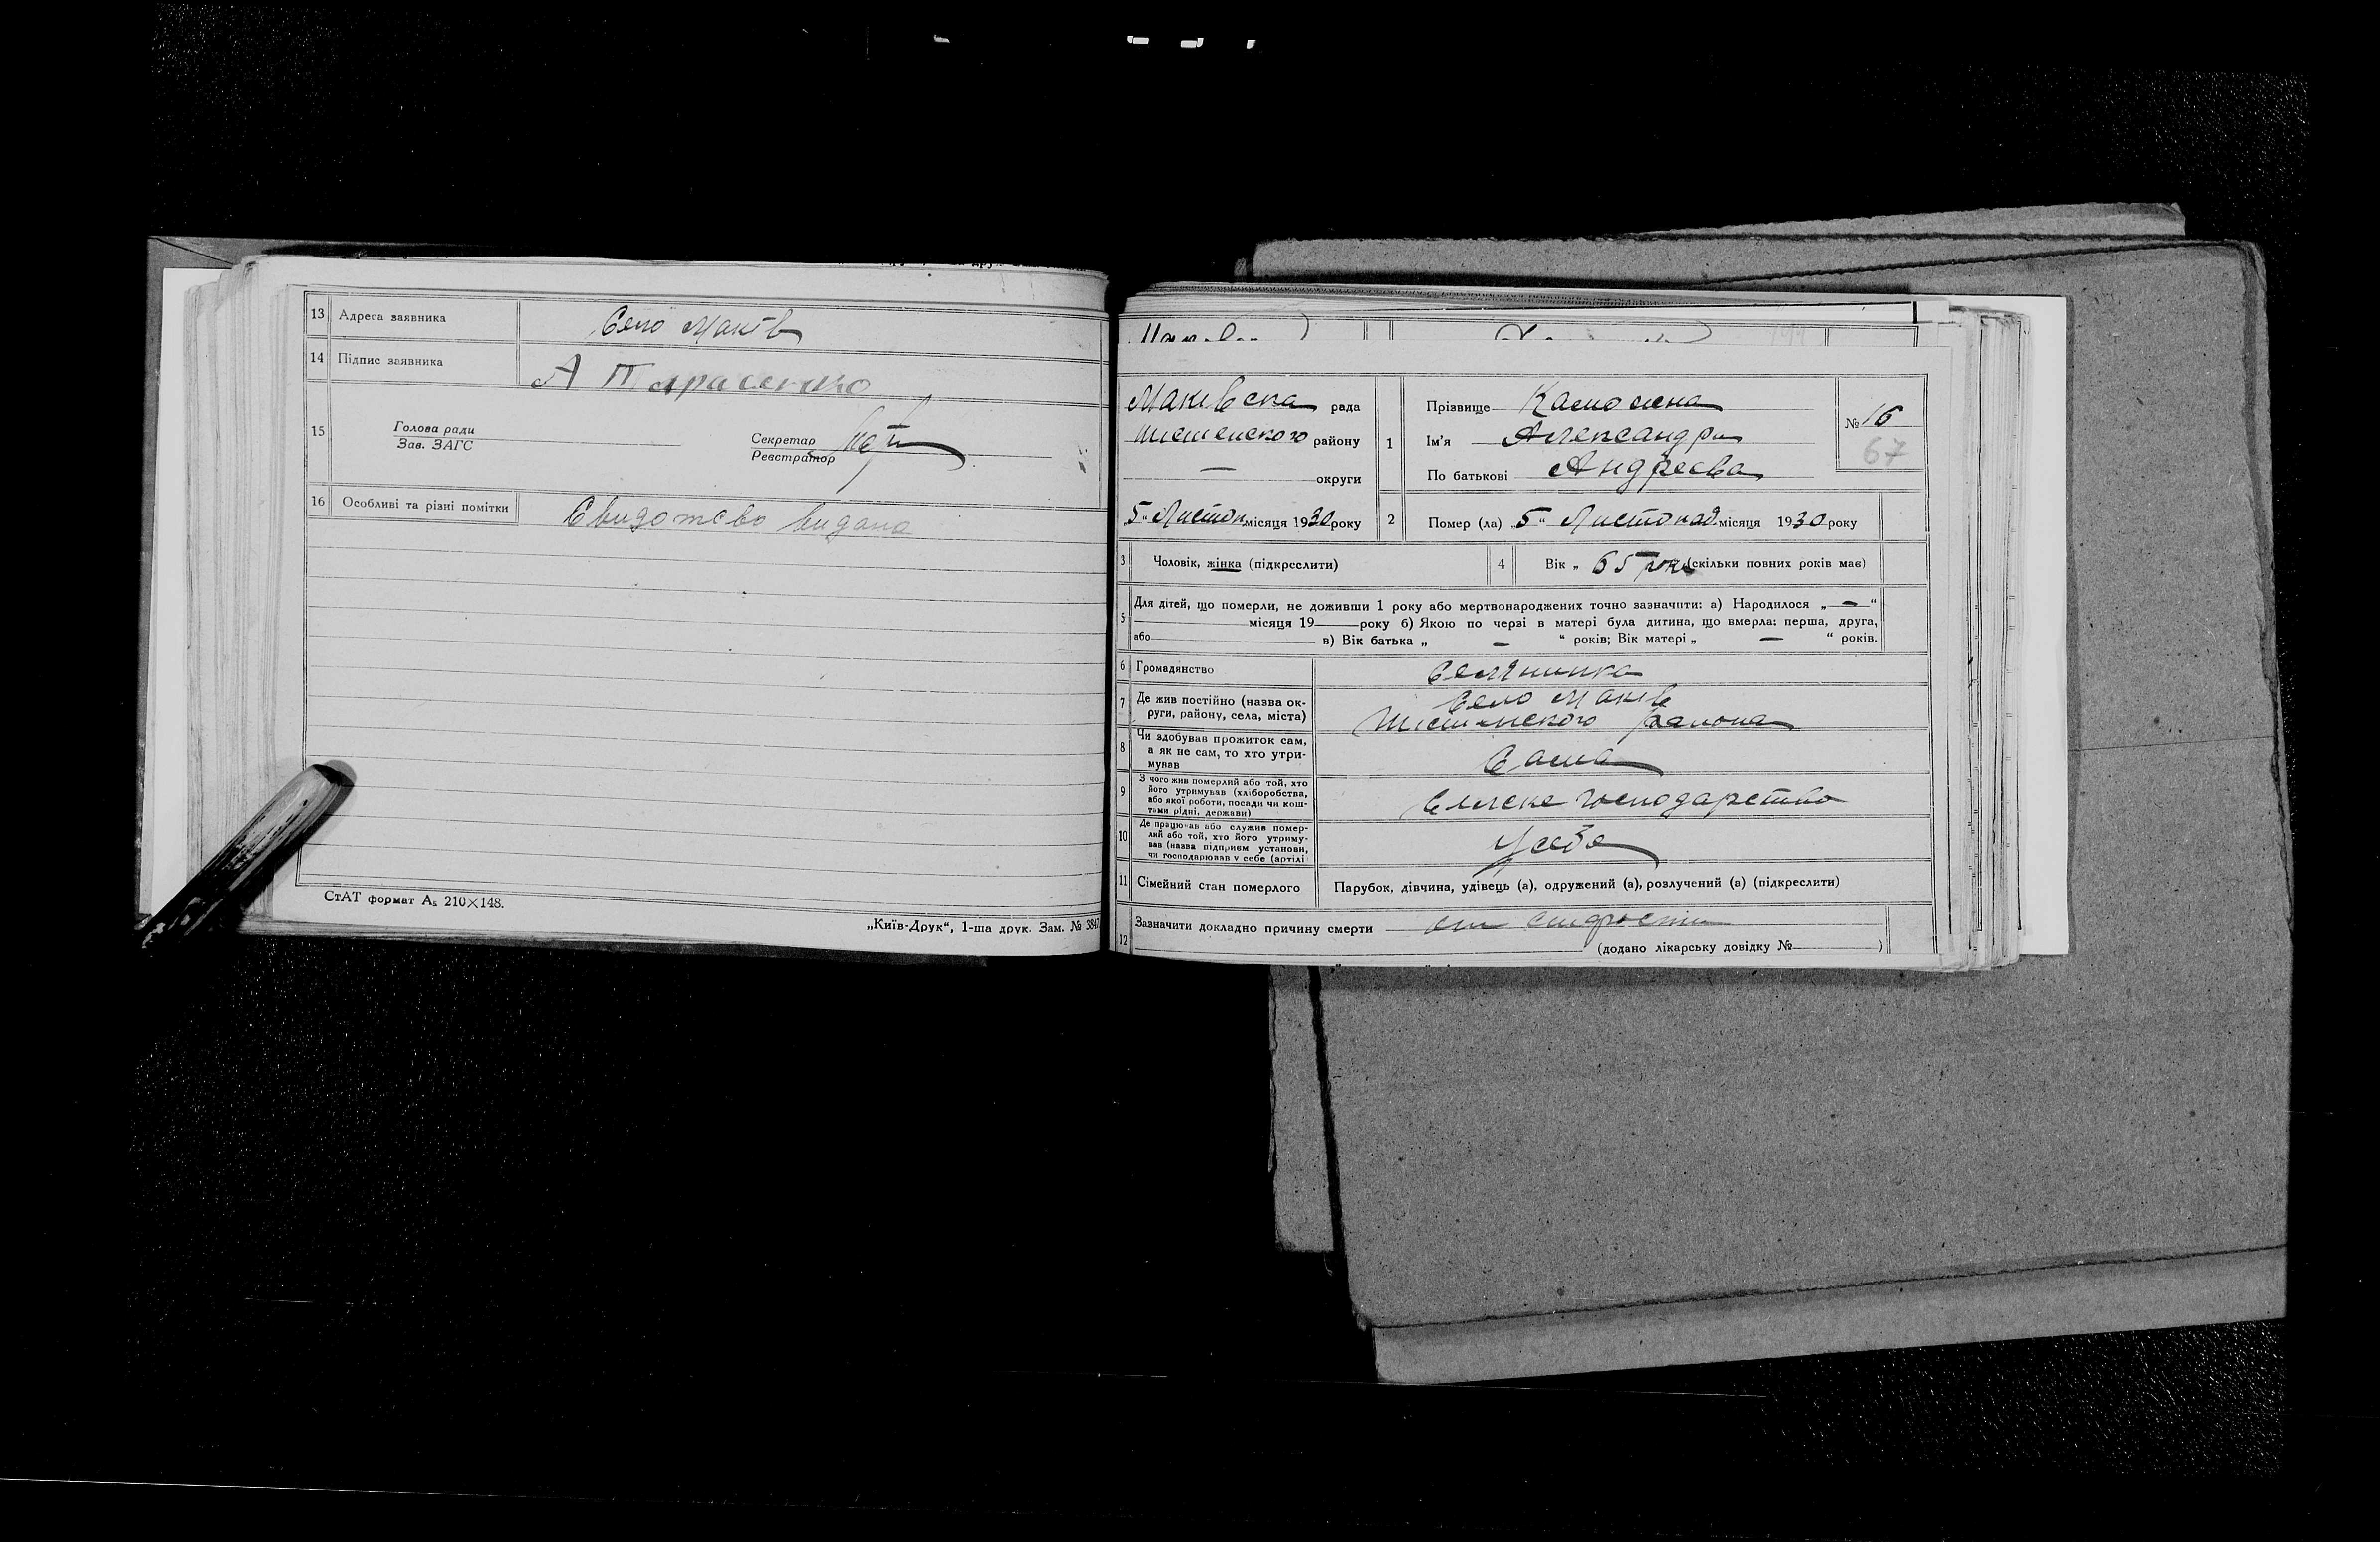 13 Адреса заявника Село Маків
14 Підпис заявника А Тарасенко
15 Голова ради
Зав. ЗАГС
Секретар
Реєстратор
16 Особливі та різні помітки Свидотсво видано
СтАТ формат А₅ 210×148.
„Київ-Друк“, 1-ша друк. Зам. № 3847
Маківска рада
району
— округи
„5“ Листоп місяця 1930 року
1 Прізвище
Ім'я Александра
По батькові Андреєва
№ 16
67
2 Помер (ла) „5“ Листопад місяця 1930 року
3 Чоловік, жінка (підкреслити)
4 Вік „ 65 рок (скільки повних років має)
5 Для дітей, що померли, не доживши 1 року або мертвонароджених точно зазначити: а) Народилося „ — “
місяця 19 року б) Якою по черзі в матері була дитина, що вмерла: перша, друга,
або в) Вік батька „ — “ років; Вік матері „ — “ років.
6 Громадянство Селянинка
7 Де жив постійно (назва ок-
руги, району, села, міста)
Село Маків
района
8 Чи здобував прожиток сам,
а як не сам, то хто утри-
мував
Сама
9 З чого жив померлий або той, хто
його утримував (хліборобства,
або якої роботи, посади чи кош-
тами рідні, держави)
Сільске господарство
10 Де працював або служив помер-
лий або той, хто його утриму-
вав (назва підприєм установи,
чи господарював у себе (артілі
У себе
11 Сімейний стан померлого Парубок, дівчина, удівець (а), одружений (а), розлучений (а) (підкреслити)
12 Зазначити докладно причину смерти
(додано лікарську довідку № )